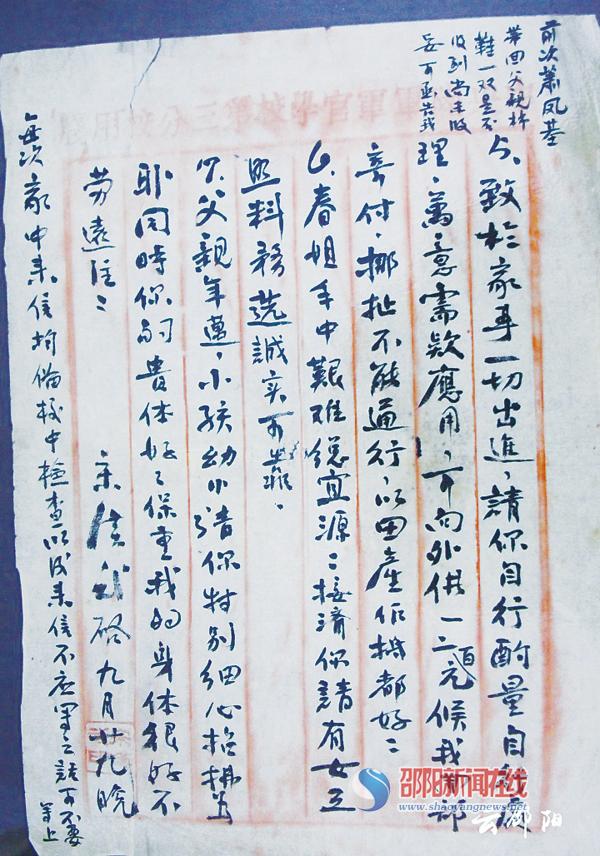 前次萧凤基
带回父亲
鞋一双是否
收到尚未收
妥可函告我
军官学校第三分校用
5、致于家事一切出进，请你自行酌量自我
理，万一意需款应用，可向外借一二百元候我新部
寄付，挪扯不能通行，以田产作抵都好：
6、春姐手中艰难总宜源：接济你请有女工
照料务选诚实可靠。
7、父亲年迈，小孩幼小请你特别细心招拂
耶同时你的贵体好々保重我的身体很好不
劳远注：
九月廿九晚
每次家中来信均偹校中检查以后来信不应写之话可不要
写上
邵阳新闻在线
www.shaoyangnews.net
云邵阳